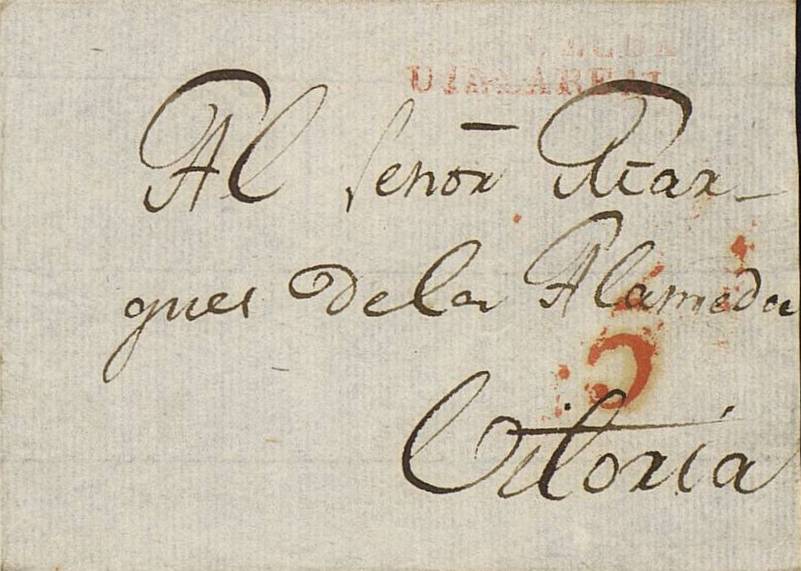 VILLAREAL
Al Señor Mar-
ques de la Alameda
5
Vitoria